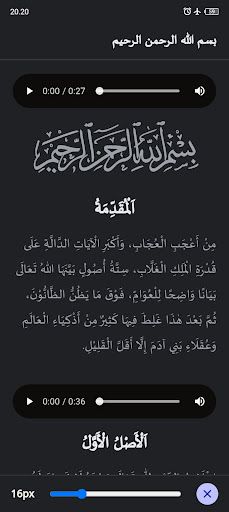 20.20
بسم الله الرحمن الرحيم
0:00 / 0:27
بِسْمِ ٱللَّهِ ٱلرَّحْمَٰنِ ٱلرَّحِيمِ
اَلْمُقَدِّمَةُ
مِنْ أَعْجَبِ الْعُجَابِ، وَأَكْبَرِ الْآيَاتِ الدَّالَّةِ عَلَى
قُدْرَةِ الْمَلِكِ الْغَلَّابِ، سِتَّةُ أُصُولٍ بَيَّنَهَا اللهُ تَعَالَى
بَيَانًا وَاضِحًا لِلْعَوَامِّ، فَوْقَ مَا يَظُنُّ الظَّانُّونَ،
ثُمَّ بَعْدَ هَذَا غَلِطَ فِيهَا كَثِيرٌ مِنْ أَذْكِيَاءِ الْعَالَمِ
وَعُقَلَاءِ بَنِي آدَمَ إِلَّا أَقَلَّ الْقَلِيلِ.
0:00 / 0:36
اَلْأَصْلُ الْأَوَّلُ
16px